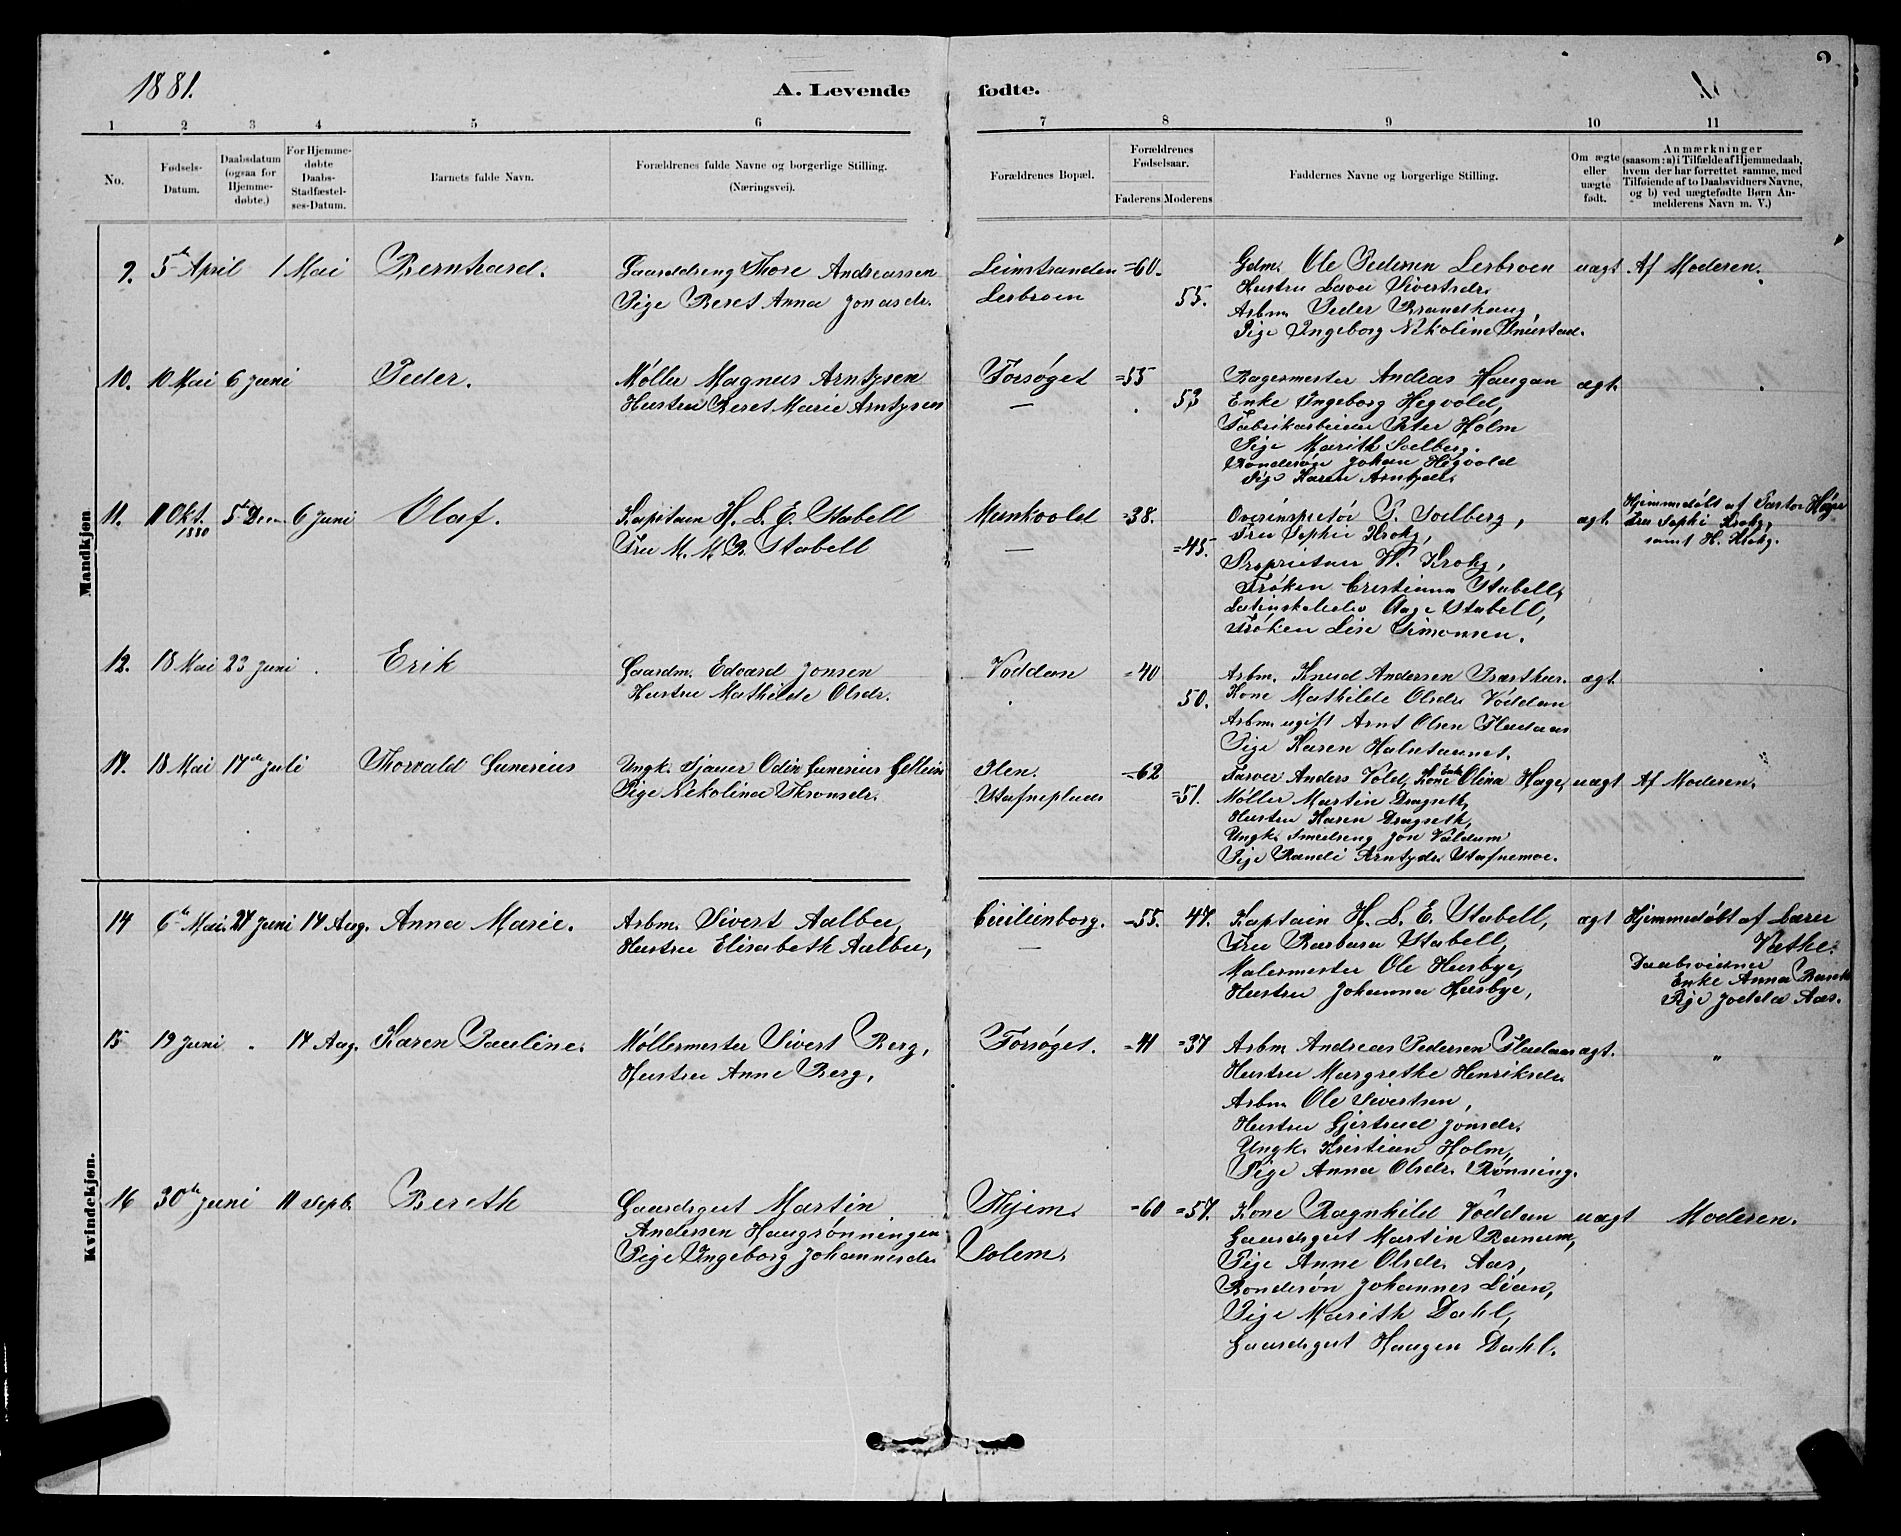 1881.
A. Levende fødte.
1 2 3 4 5 6 7 8 9 10 11
No.
Fødsels-Datum.
Daabsdatum (ogsaa for Hjemme-døbte.)
For Hjemme-døbte Daabs-Stadfæstel-ses-Datum.
Barnets fulde Navn.
Forældrenes fulde Navne og borgerlige Stilling. (Næringsvei).
Forældrenes Bopæl.
Forældrenes Fødselsaar.
Faderens Moderens
Faddernes Navne og borgerlige Stilling.
Om ægte eller uægte født.
Anmærkninger (saasom: a) i Tilfælde af Hjemmedaab, hvem der har forrettet samme, med Tilføiende af to Daabsvidners Navne, og b) ved uægtefødte Børn An-melderens Navn m. V.)
Mandkjøn
9. 5te April 1 Mai Bernhard. Gaarddreng Thore Andreassen Leinstranden =60. Gdm. Ole Pedersen Lerbroen uægt. Af Moderen.
Pige Beret Anna Jonasdr. Lerbroen 55. Hustru Sivertsdr.
Arbm. Peder Brandhaug,
Pige Ingeborg Nikoline
10. 10 Mai 6 Juni Peder. Møller Magnus Arntysen Forsøget =55 Bagermester Andreas Haugan ægt.
Hustru Beret Marie Arntysen — 53 Enke Ingeborg Hegvold,
Fabrikarbeider Peter Holm
Pige Marith Solberg.
Bondesøn Johan Hegvold
Pige Karen Arntzdr.
11. 11 Okt. 1880 5te Dec. 6 Juni Olaf. Kapitain H. L. E. Stabell Munkvold =38. Overinspektør P. Solberg, ægt. Hjemmedøbt af Pastor
Fru M. M. B. Stabell — =45. Fru Sophie Krohg, Fru Sophi Krohg,
Proprietær H. Krohg, samt H. Krohg.
Frøken Cristiana Stabell,
Latinskoleelev Aage Stabell,
Frøken Lise Simonsen.
12. 18 Mai 23 Juni . Erik Gaardm. Edvard Jonsen Voddan =40 Arbm. Knud Andersen ægt.
Hustru Mathilde Olsdr. 50. Kone Mathilde Olsdr. Voddan
Arbm. ugift Arnt Olsen Fladaas
Pige Karen Halsetaunet.
17. 18 Mai 17de Juli Thorvald Gunerius Ungk. Sjauer Odin Gunerius Ilen. =62 Farver Anders Vold, Enke Kone Olina Hage, uægt Af Moderen.
Pige Nikolina Thronsdr. Stafneplads =51. Møller Martin Dragseth,
Hustru Karen Dragseth,
Ungk. Smeddreng Jon Valdum
Pige Randi Arntzdr. Stafnemoe.
Kvindekjøn.
14 6te Mai. 27 Juni 14 Aug. Anna Marie. Arbm. Sivert Aalbu, Cicilienborg. =55. 47. Kaptain H. L. E. Stabell, ægt Hjemmedøbt af Lærer
Hustru Elisabeth Aalbu, — Fru Barbara Stabell, Væthe.
Malermester Ole Husbye, Daabsvidner
Hustru Johanna Husbye, Enke Anna
Pige Jodda Aas.
15 19 Juni . 14 Aug. Karen Pauline. Møllermester Sivert Berg, Forsøget. =41 =37 Arbm. Andreas Pedersen Fladaas ægt. "
Hustru Anne Berg, Hustru Margrethe Henriksdr.
Arbm. Ole Sivertsen,
Hustru Gjertrud Jonsdr.
Ungk. Kristian Holm,
Pige Anna Olsdr. Rønning.
16 30te Juni 11 Sepb. Bereth Gaardsgut Martin Thjem. =60 =57. Kone Ragnhild Voddan uægt Moderen.
Andersen Haugrønningen Gaardsgut Martin Ranum,
Pige Ingeborg Johannesdr. Solem. Pige Anne Olsdr. Aas,
Bondesøn Johannes Lian,
Pige Marith Dahl,
Gaardsgut Haagen Dahl.